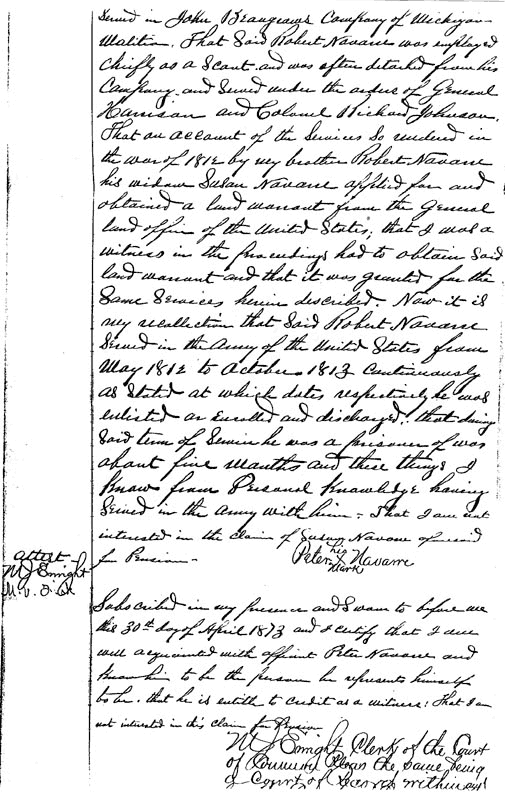 Served in John Beaugraws Company of Michigan
Militia. That Said Robert Navarre was employed
chiefly as a Scout and was often detailed from his
Company and Served under the orders of General
Harrison and Colonel Richard Johnson.
That on account of the Services So rendered in
the war of 1812 by my brother Robert Navarre
his widow Susan Navarre applied for and
obtained a land warrant from the General
land office of the United States; that I was a
witness in the proceedings had to obtain Said
land warrant and that it was granted for the
Same Services herein described. Now it is
my recollection that Said Robert Navarre
Served in the Army of the United States from
May 1812 to October 1813 Continuously
as Stated at which dates respectively he was
enlisted or Enrolled and discharged. that during
Said term of Service he was a prisoner of war
about five Months and these things I
Know from Personal Knowledge having
Served in the Army with him - That I am not
interested in the claim of Susan Navarre
for Pension -
his
Peter X Navarre
Mark
attest
M J Enright
Subscribed in my presence and Sworn to before me
this 30th day of April 1873 and I certify that I am
well acquainted with affiant Peter Navarre and
Know him to be the person he represents himself
to be. that he is entitled to credit as a witness: That I am
not interested in this claim for Pension
M J Enright Clerk of the Court
of Common Pleas the Same being
a Court of Record within and